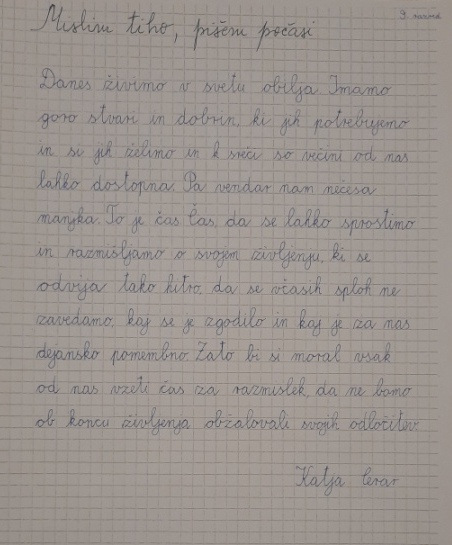 9. razred
Mislim tiho, pišem počasi
Danes živimo v svetu obilja. Imamo
goro stvari in dobrin, ki jih potrebujemo
in si jih želimo in k sreči so večini od nas
lahko dostopna. Pa vendar nam nečesa
manjka. To je čas. Čas, da se lahko sprostimo
in razmišljamo o svojem življenju, ki se
odvija tako hitro, da se včasih sploh ne
zavedamo, kaj se je zgodilo in kaj je za nas
dejansko pomembno. Zato bi si moral vsak
od nas vzeti čas za razmislek, da ne bomo
ob koncu življenja obžalovali svojih odločitev.
Katja Cerar